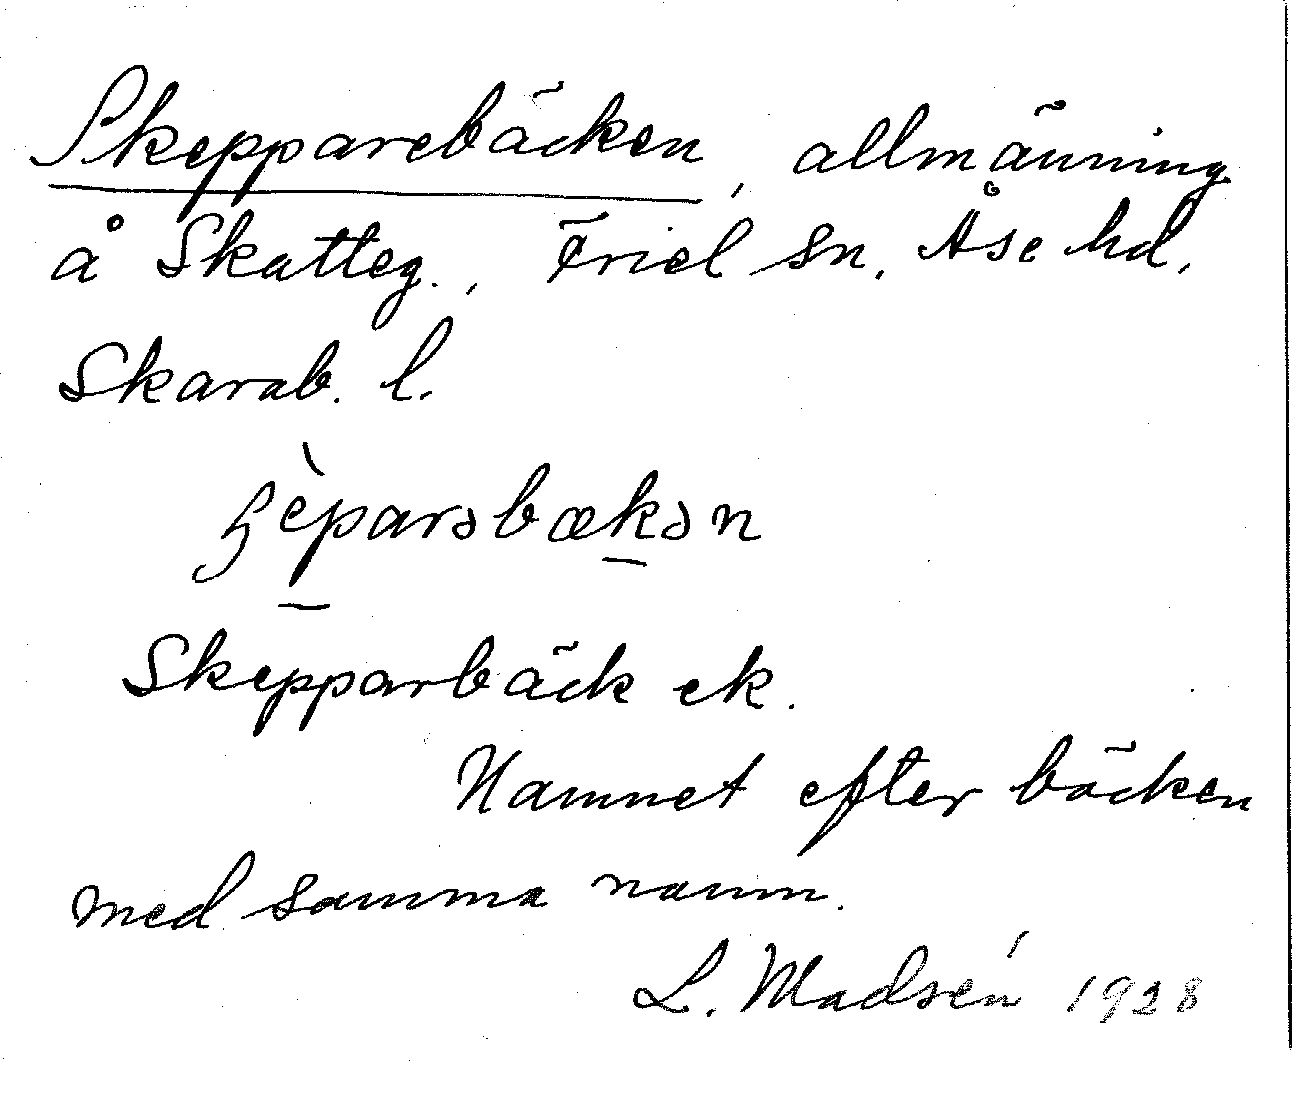 Skepparebäcken, allmänning
å Skatteg., Friel sn, Åse hd,
Skarab. l.
Skepparbäck ek.
Namnet efter bäcken
med samma namn.
L. Madsén 1928